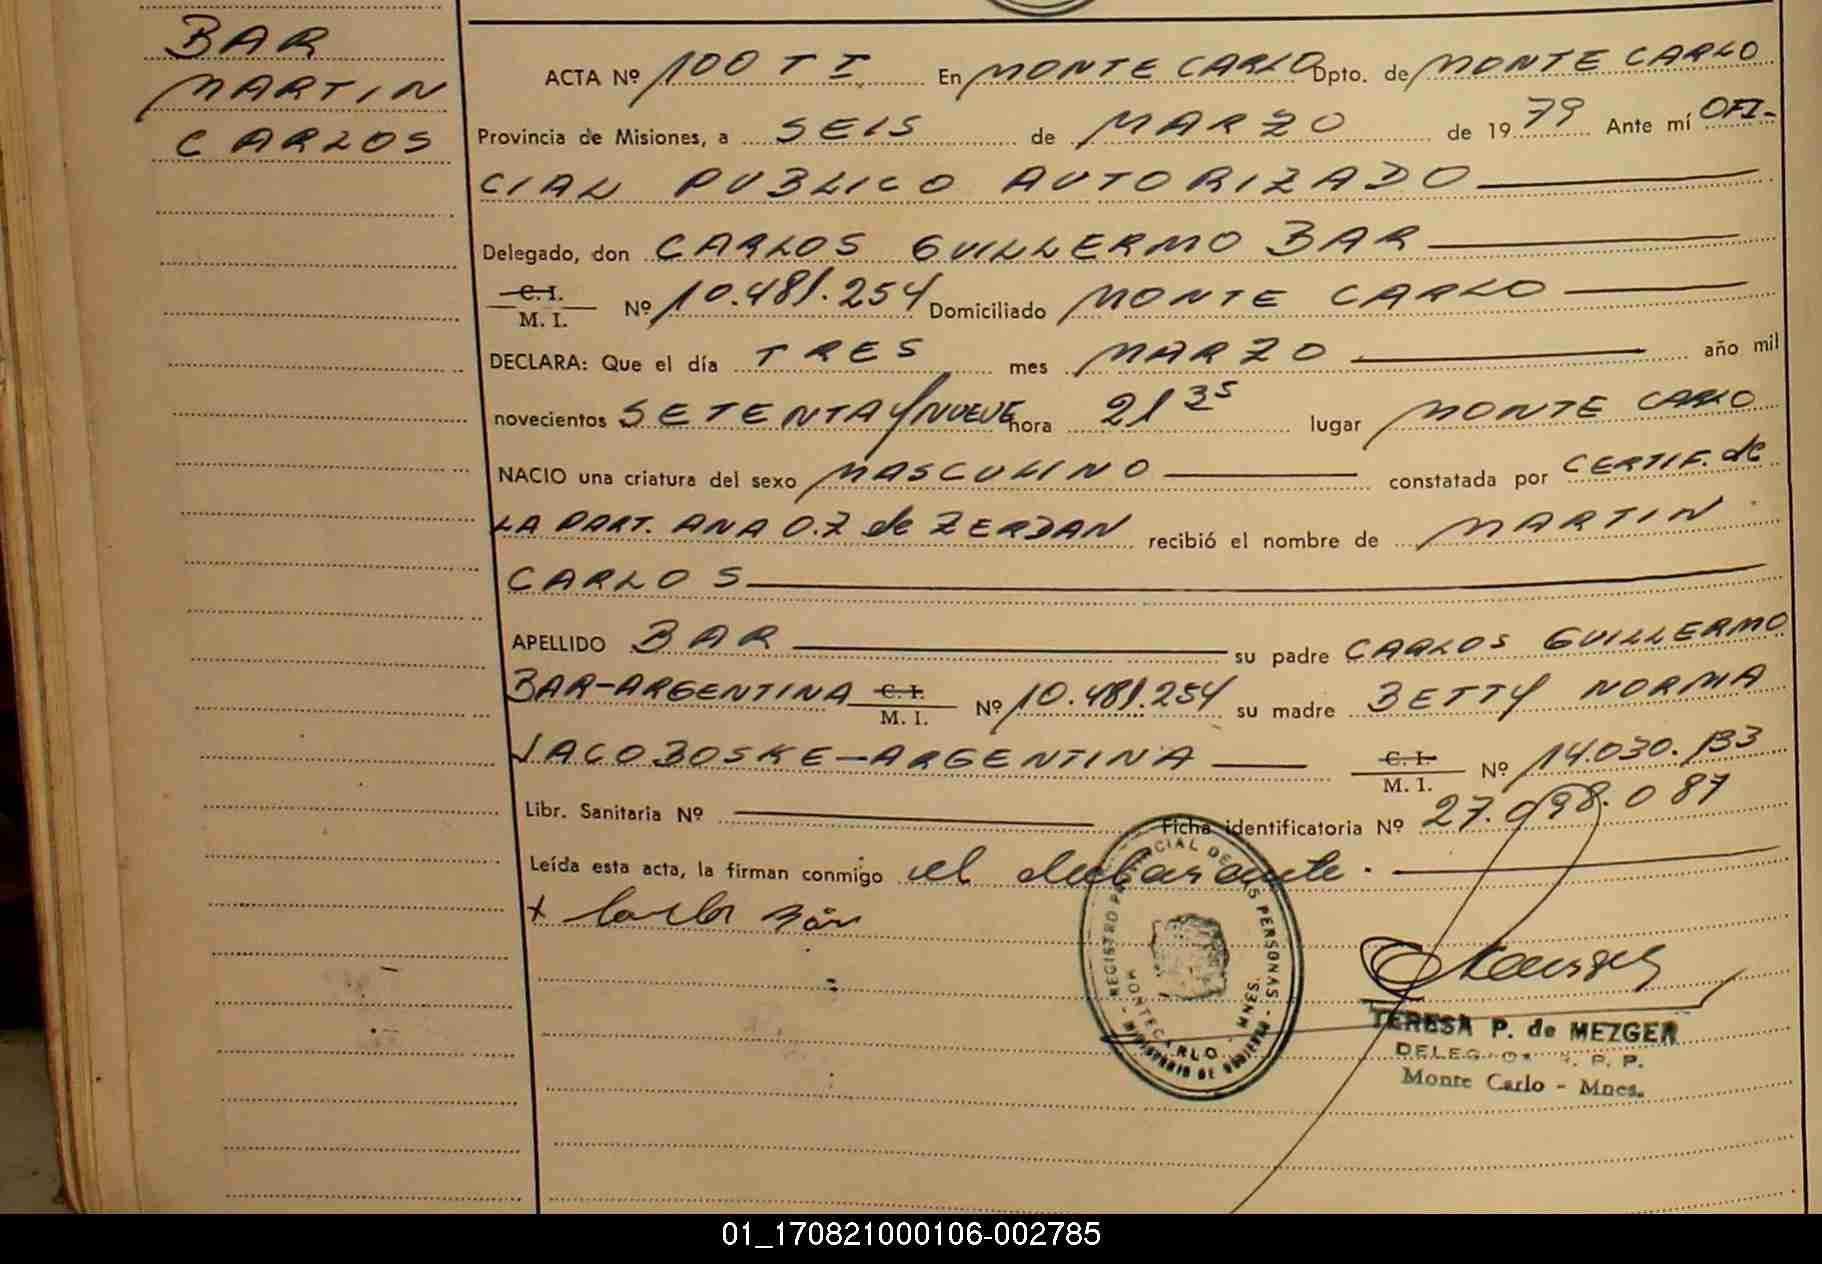 BAR
MARTIN
CARLOS
ACTA Nº 100 T I En MONTE CARLO Dpto. de MONTE CARLO
Provincia de Misiones, a SEIS de MARZO de 1979 Ante mí OFI-
CIAL PUBLICO AUTORIZADO
Delegado, don CARLOS GUILLERMO BAR
C. I.
M. I. Nº 10.481.254 Domiciliado MONTE CARLO
DECLARA: Que el día TRES mes MARZO año mil
novecientos SETENTA Y NUEVE hora 21 35 lugar MONTE CARLO
NACIO una criatura del sexo MASCULINO constatada por CERTIF. de
LA PART. ANA O.Z de ZERDAN recibió el nombre de MARTIN
CARLOS
APELLIDO BAR su padre CARLOS GUILLERMO
BAR-ARGENTINA C. I. M. I. Nº 10.481.254 su madre BETTY NORMA
JACOBOSKE-ARGENTINA C. I. M. I. Nº 14.030.133
Libr. Sanitaria Nº Ficha identificatoria Nº 27.098.087
Leída esta acta, la firman conmigo el declarante.
x Carlos Bar
REGISTRO PROVINCIAL DE LAS PERSONAS
MONTECARLO - MNES.
MINISTERIO DE GOBIERNO
TERESA P. de MEZGER
DELEGADA R. P. P.
Monte Carlo - Mnes.
01_170821000106-002785